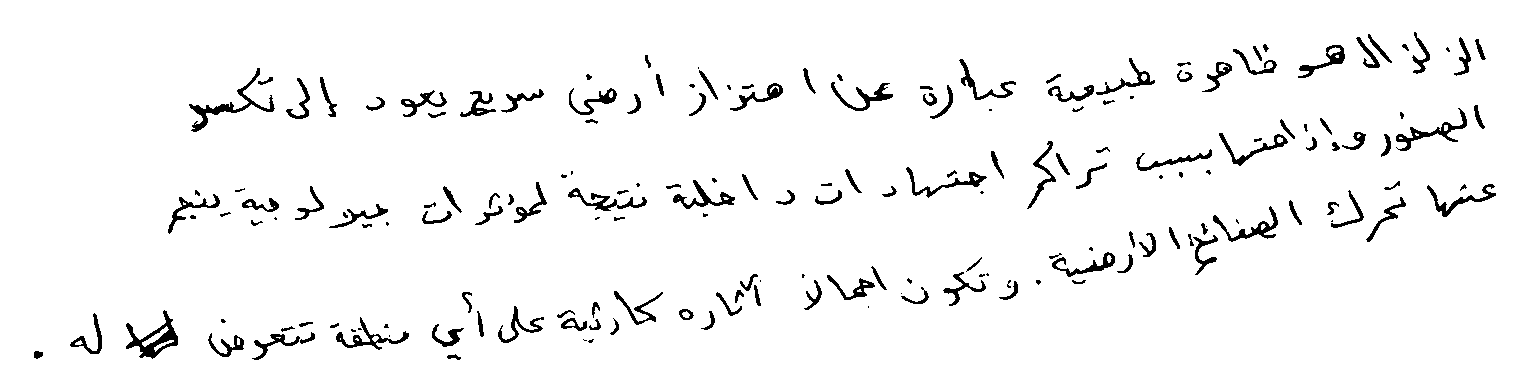 الزلزال هو ظاهرة طبيعية عبارة عن اهتزاز أرضي سريع يعود إلى تكسر
الصخور وإزاحتها بسبب تراكم اجتهادات داخلية نتيجة لمؤثرات جيولوجية ينجم
عنها تحرك الصفائح الأرضية. وتكون اجمالا آثاره كارثية على أي منطقة تتعرض له .